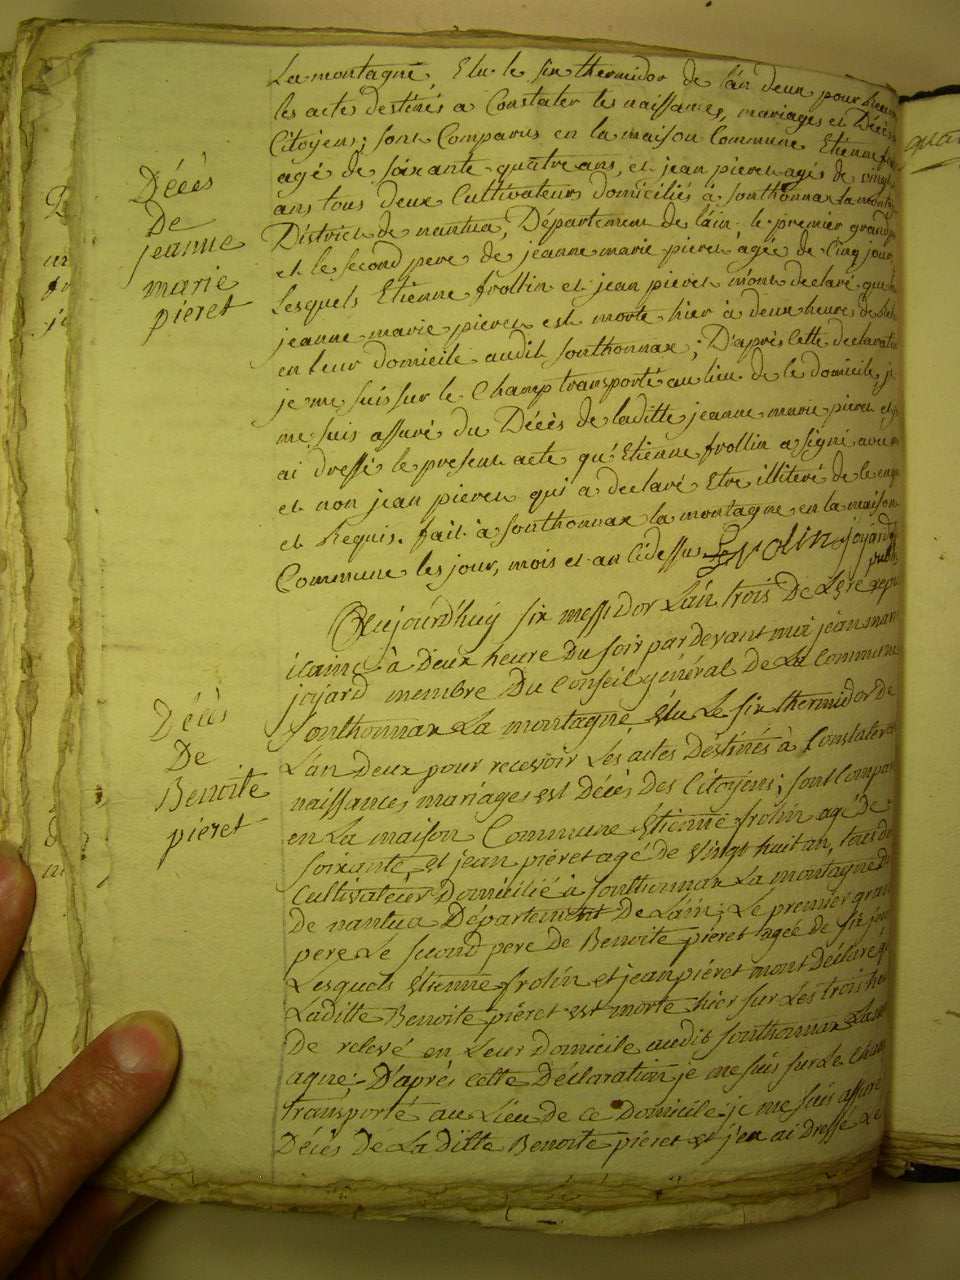 La montagne, Elu le six thermidor de l'an deux pour
les acte destinés a Constater les naissances, mariages et Décès
Citoyens; sont Comparus en la maison Commune Etienne
agé de soixante quatre ans, et jean pieret agés de vingt
ans tous deux Cultivateurs domiciliés à Sonthonnax la
District de nantua, Département de l'ain, le premier grand
et le second pere de jeanne marie pieret agée de Cinq jour
Lesquels Etienne frollin et jean pieret m'ont declaré que
jeanne marie pieret est morte hier à deux heures de
en leur domicile audit Sonthonnax; D'après Cette declaration
je me suis sur le Champ transporté au lieu de le domicile, je
me suis assuré du Décès de laditte jeanne marie pieret et
ai dressé le present acte qu'Etienne frollin a signé avec
et non jean pieret qui a declaré Etre illiteré de le
et Requis. fait à Sonthonnax la montagne en la maison
Commune les jour, mois et an Cidessus frolin joyard
public
Décès
De
jeanne
marie
pieret
Aujourd'huy six messidor L'an trois De L'ere repu
icaine à Deux heure Du soir par devant moi jean mari
joyard membre Du Conseil général De La Commune
Sonthonnax La montagne Elu Le six thermidor de
L'an Deux pour recevoir Les actes Destinés à Constater
naissances mariages est Décès Des Citoyens; sont Compa
en La maison Commune Etienne frolin agé de
soixante, et jean piéret agé de vingt huit an, tous
Cultivateur Domicilié à Sonthonnax La montagne
de nantua Département De L'ain; Le premier gran
pere Le second pere De Benoite piéret agée de six jour
Lesquels étienne frolin et jean piéret m'ont déclaré
Laditte Benoite piéret est morte hier sur Les trois
De relevé en Leur Domicile audit Sonthonnax La
agne. D'après cette Déclaration je me suis sur Le Cham
transporté au Lieu de ce Domicile je me suis assuré
Décès de Laditte Benoite piéret et j'en ai Dressé Le
Décès
De
Benoite
piéret